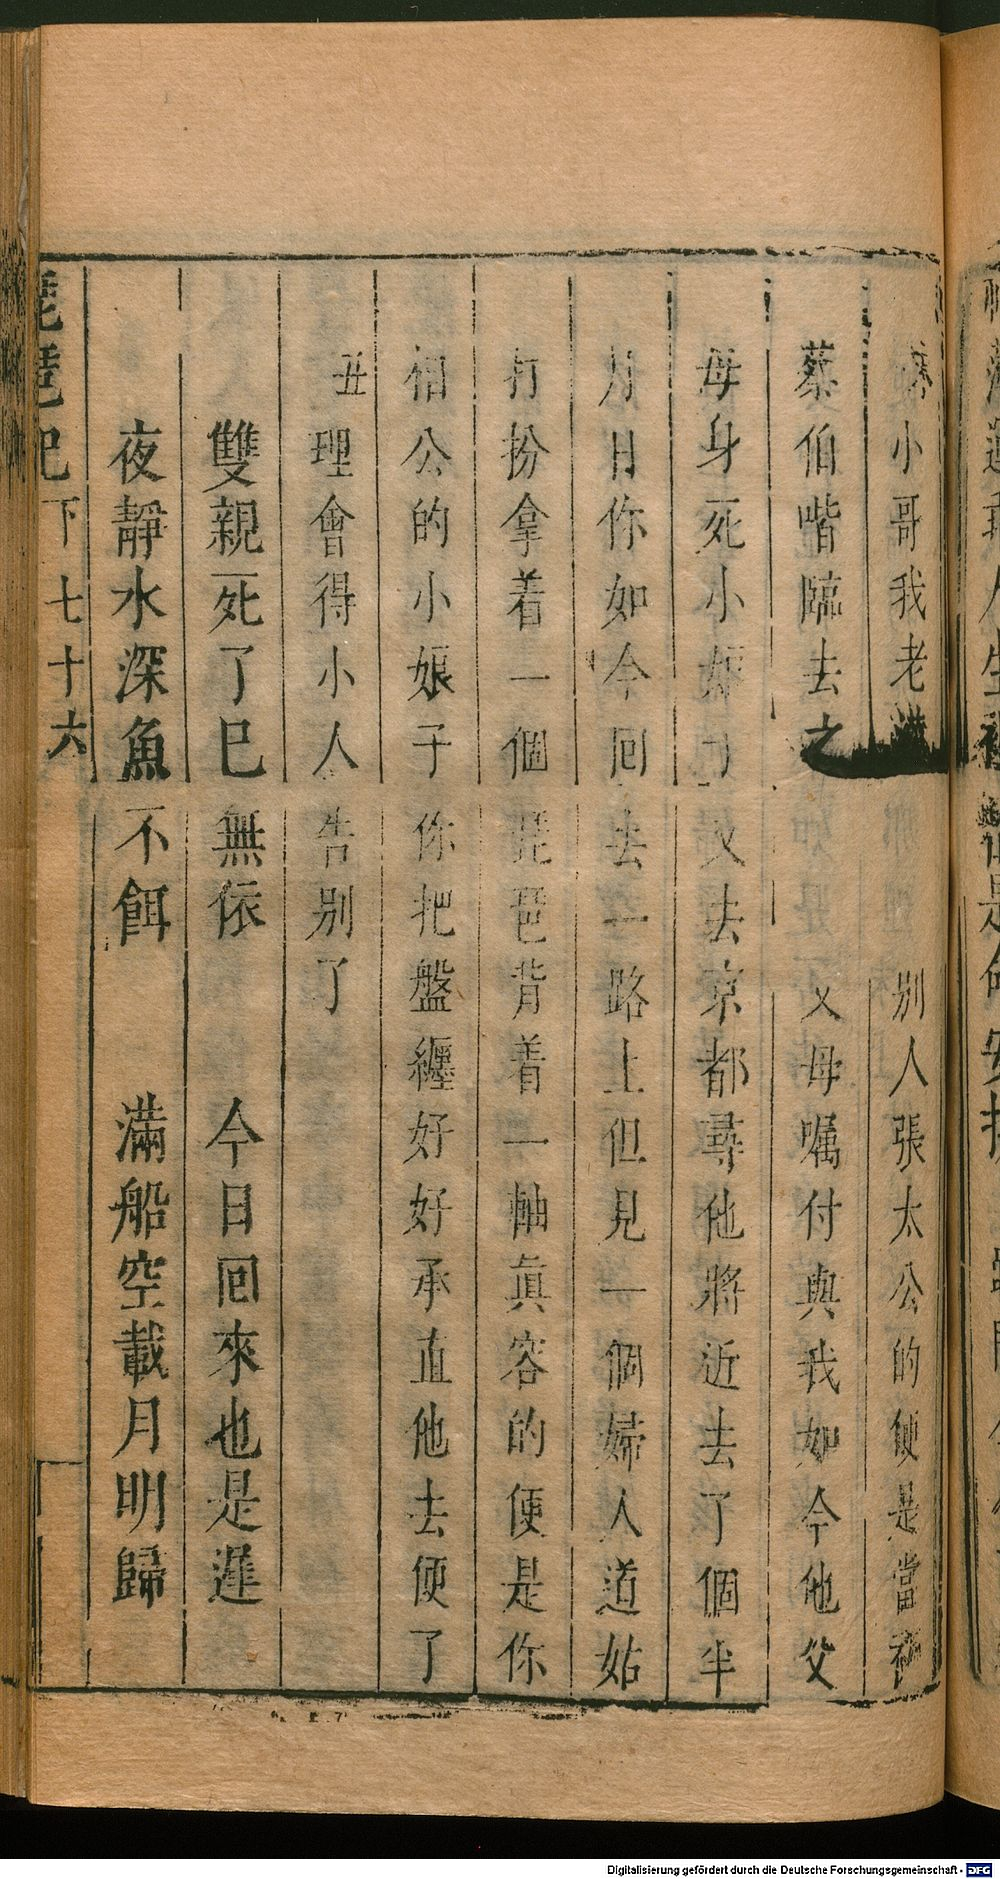 小哥我老漢 別人張太公的便是當初
蔡伯喈臨去之 父母囑付與我如今他父
母身死小媳 又去京都尋他將近去了個半
月日你如今回去一路上但見一個婦人道姑
打扮拿着一個琵琶背着一軸眞容的便是你
相公的小娘子你把盤纏好好承直他去便了
丑理會得小人告别了
雙親死了已無依 今日回來也是遲
夜靜水深魚不餌 滿船空載月明歸
琵琶記 下 七十六
Digitalisierung gefördert durch die Deutsche Forschungsgemeinschaft - DFG